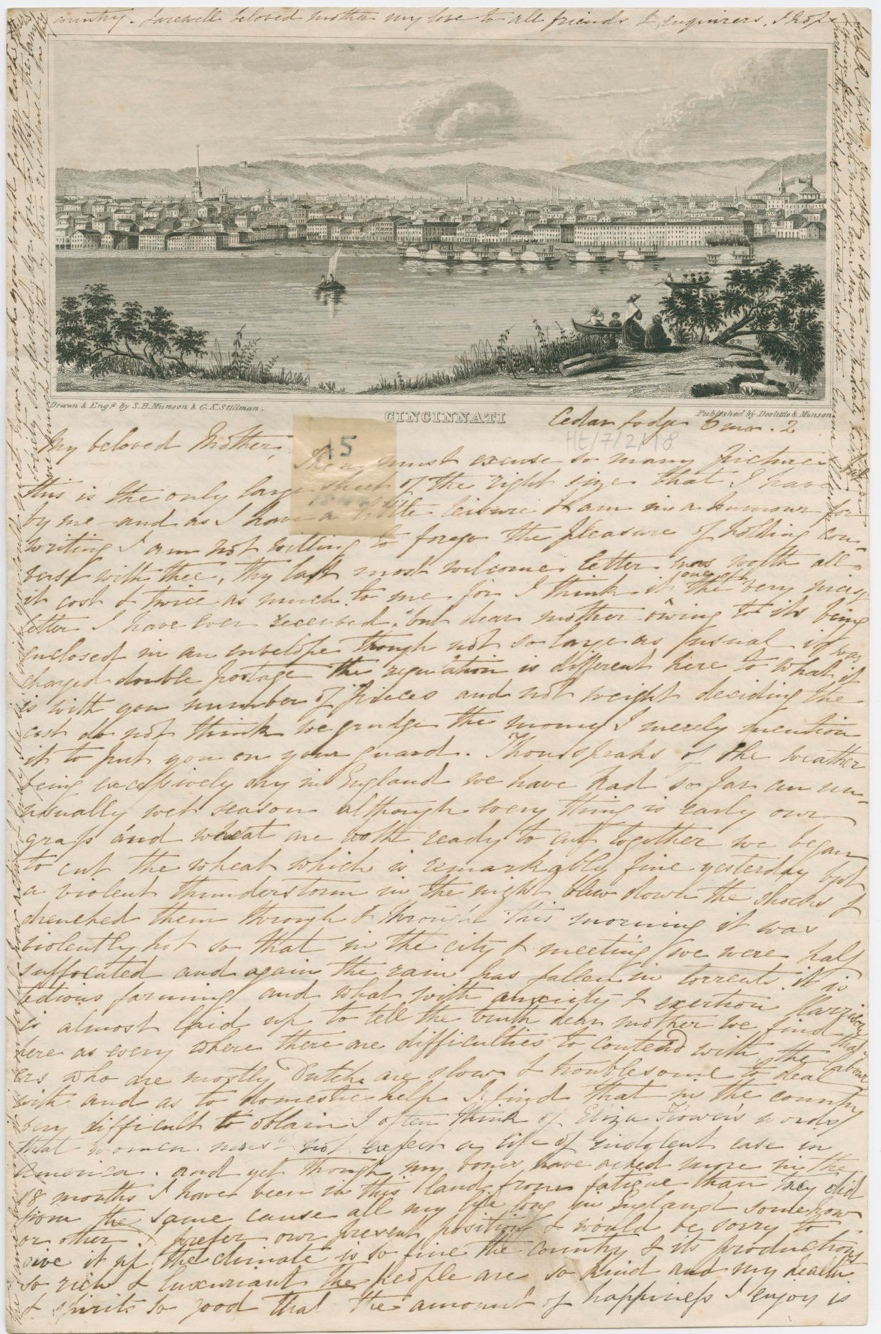 country. farewell beloved mother my love to all friends & enquirers. I hope
Drawn & Engd. by S.B. Munson & G.K. Stillman.
Published by Doolittle & Munson
CINCINNATI
Cedar Lodge 6 mo. 2
HE/7/2/18
15
My beloved Mother
must excuse so many pictures
this is the only large sheet of the right size that I have
by me and as I have a little leisure & am in a humour for
writing I am not willing to forego the pleasure of holding con
verse with thee, thy last most welcome letter was worth all
it cost & twice as much to me for I think it one of the very nicest
letter I have ever received. but dear mother owing to its being
enclosed in an envelope though not so large as usual it was
charged double postage the regulation is different here to what it
is with you number of pieces and not weight deciding the
cost do not think we grudge the money I merely mention
it to put you on your guard. Thou speaks of the weather
being excessively dry in England we have had so far an un-
usually wet season although every thing is early our
grass and wheat are both ready to cut together we began
to cut the wheat which is remarkably fine yesterday but
a violent thunderstorm in the night blew down the shocks &
drenched them through & through this morning it was
violently hot so that in the city & meeting we were half
suffocated and again the rain has fallen in torrents. it is
farming and what with anxiety & exertion Harrison
is almost laid up to tell the truth dear mother we find that
here as every where there are difficulties to contend with the labour
ers who are mostly Dutch are slow & troublesome to deal
with and as to domestic help I find that in the country
very difficult to obtain I often think of Eliza words
that women must not expect a life of indolent ease in
America. and yet though my bones have ached more in the
18 months I have been in this land from fatigue than they did
from the same cause all my life long in England somehow
or other I prefer our present position & would be sorry to
give it up the climate is so fine the country & its productions
so rich & luxuriant the people are so kind and my health
& spirits so good that the amount of happiness I enjoy is